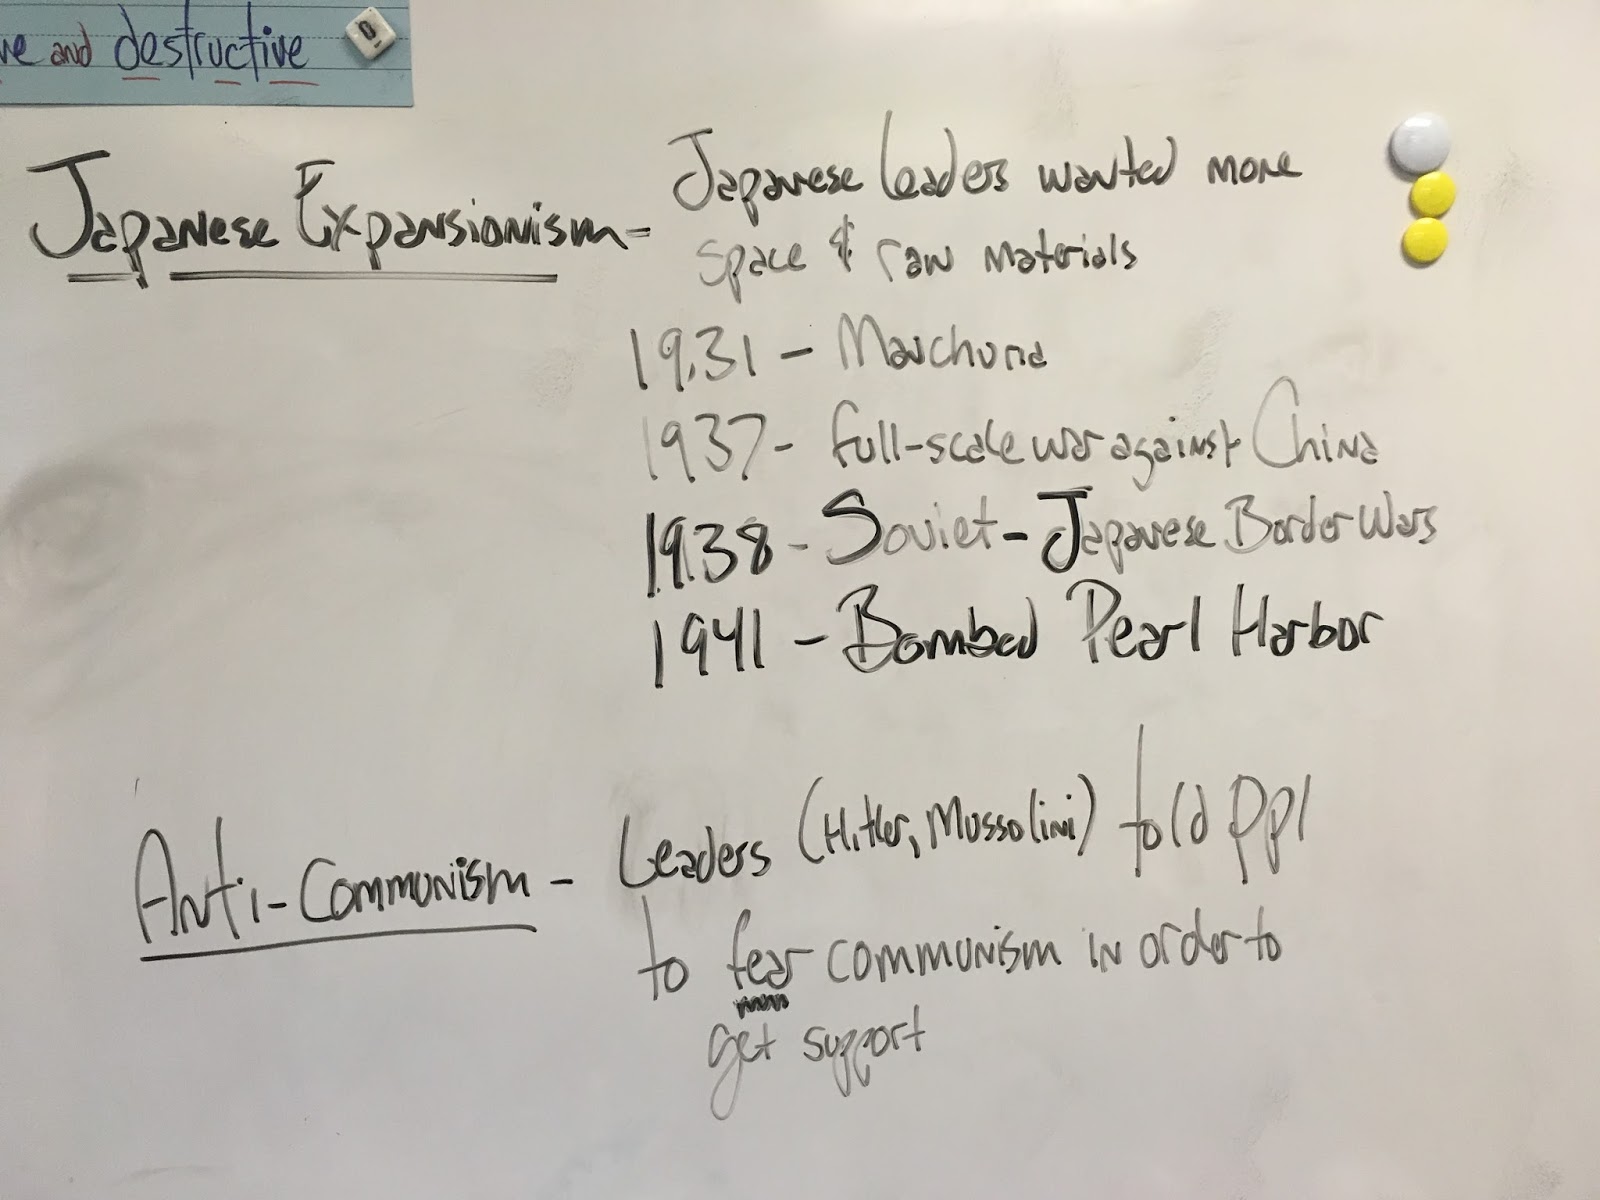 ve and destructive
Japanese Expansionism - Japanese leaders wanted more
space & raw materials
1931 - Manchuria
1937 - full-scale war against China
1938 - Soviet - Japanese Border Wars
1941 - Bombed Pearl Harbor
Anti-Communism - Leaders (Hitler, Mussolini) told ppl
to fear communism in order to
get support